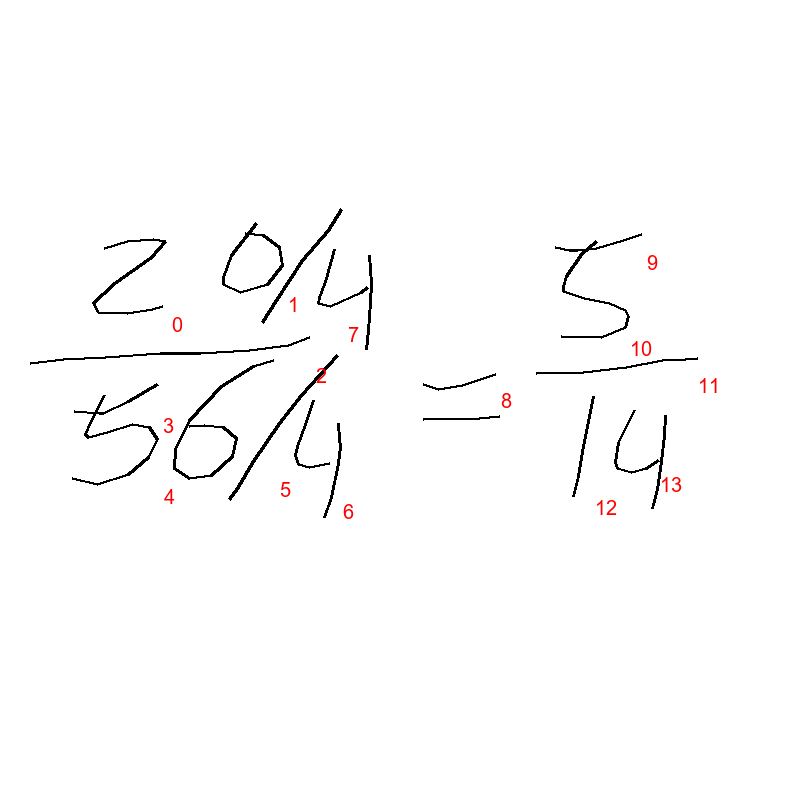 20/4
56/4
=
5
14
0
1
2
3
4
5
6
7
8
9
10
11
12
13